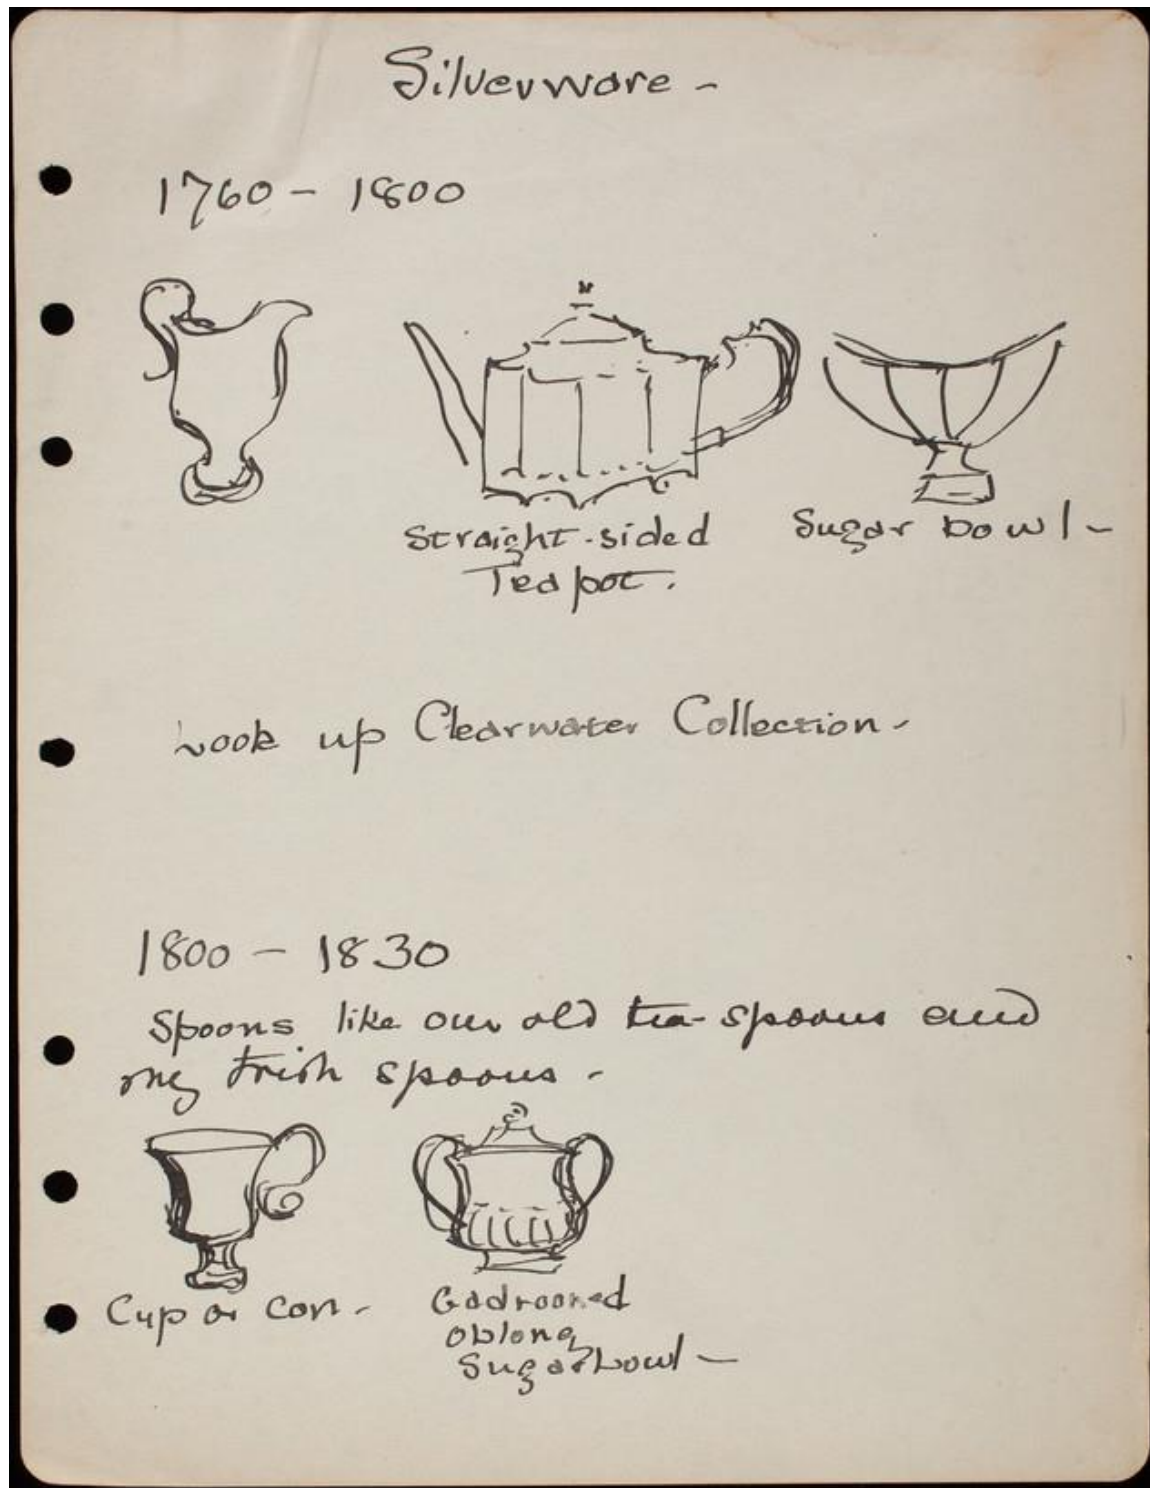 Silverware -
1760 - 1800
Straight-sided
Teapot.
Sugar bowl -
Look up Clearwater Collection -
1800 - 1830
Spoons like our old tea-spoons and
my Irish spoons -
Cup or can -
Gadrooned
oblong
Sugarbowl -